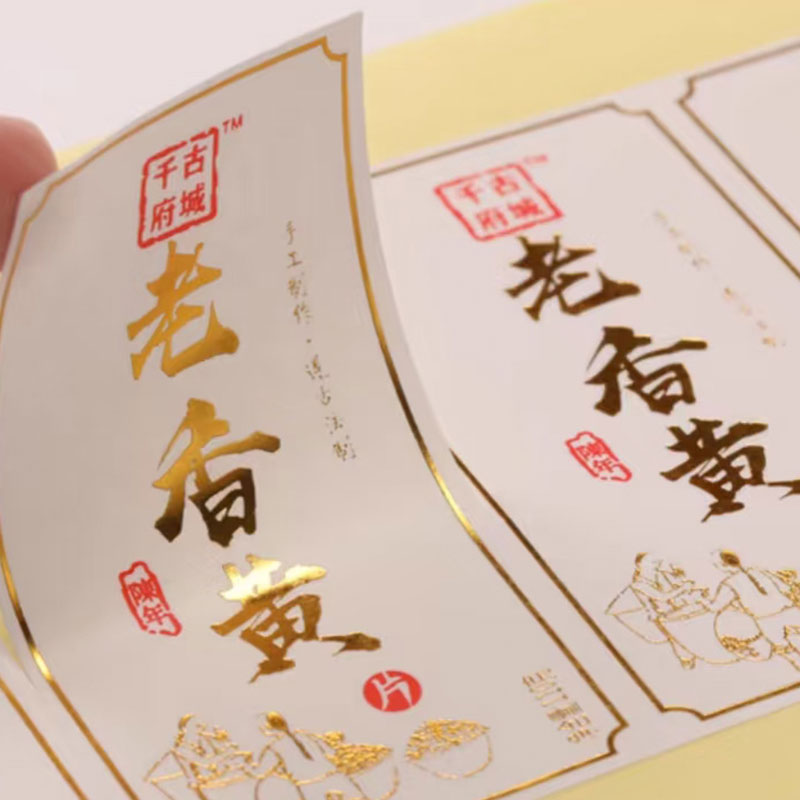 千古™
府城
老香黄
手工制作·古法制
陳年
片
千古™
府城
老香黄
陳年